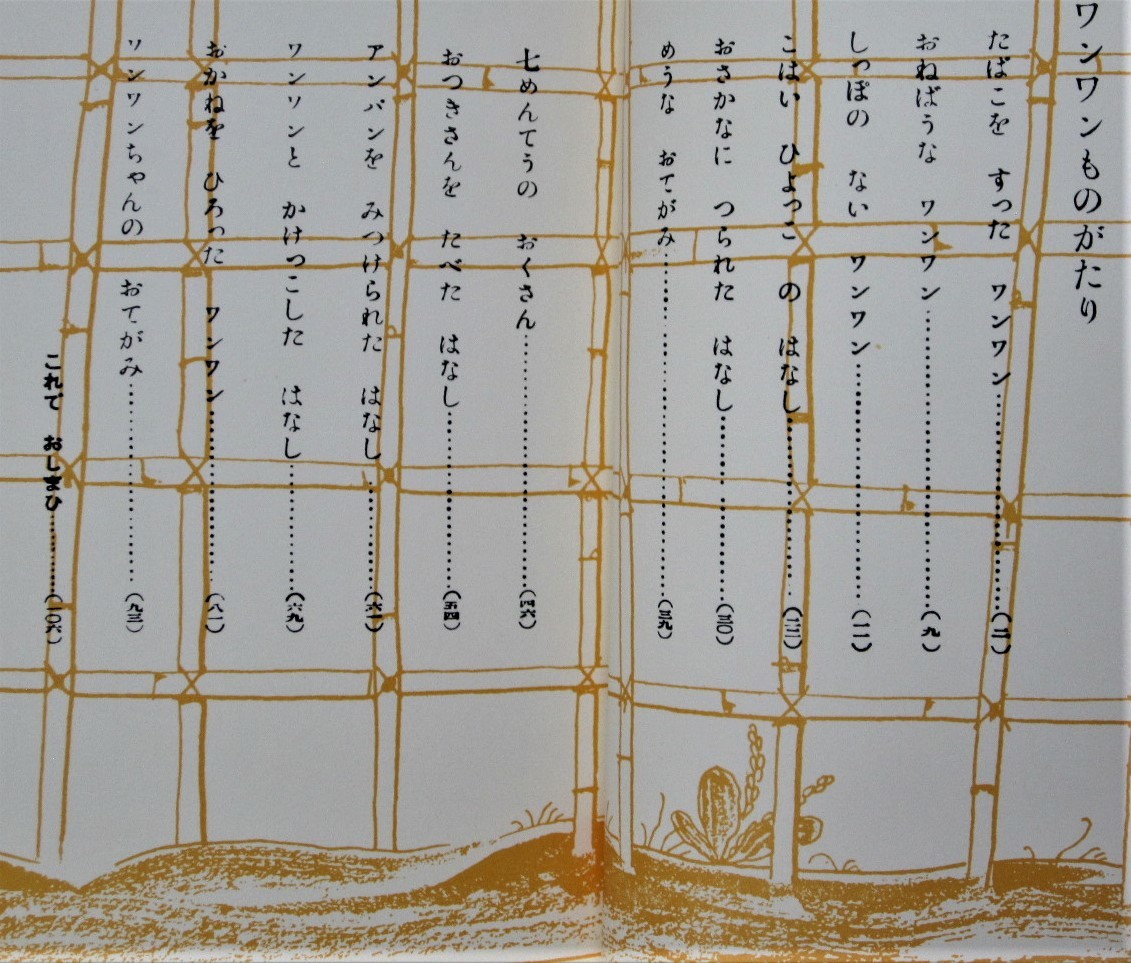 ワンワンものがたり
たばこを すった ワンワン……(二)
おねばうな ワンワン……(九)
しっぽの ない ワンワン……(一一)
こはい ひよっこ の はなし……(二三)
おさかなに つられた はなし……(三〇)
めうな おてがみ……(三九)
七めんてうの おくさん……(四六)
おつきさんを たべた はなし……(五四)
アンパンを みつけられた はなし……(六一)
ワンワンと かけつこした はなし……(六九)
おかねを ひろった ワンワン……(八一)
ワンワンちゃんの おてがみ……(九三)
これで おしまひ……(一〇六)